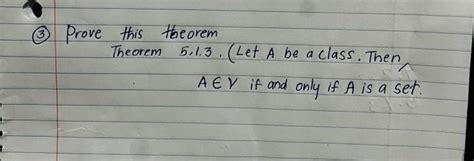 ③ Prove this theorem
Theorem 5.1.3. (Let A be a class. Then
A ∈ V if and only if A is a set.